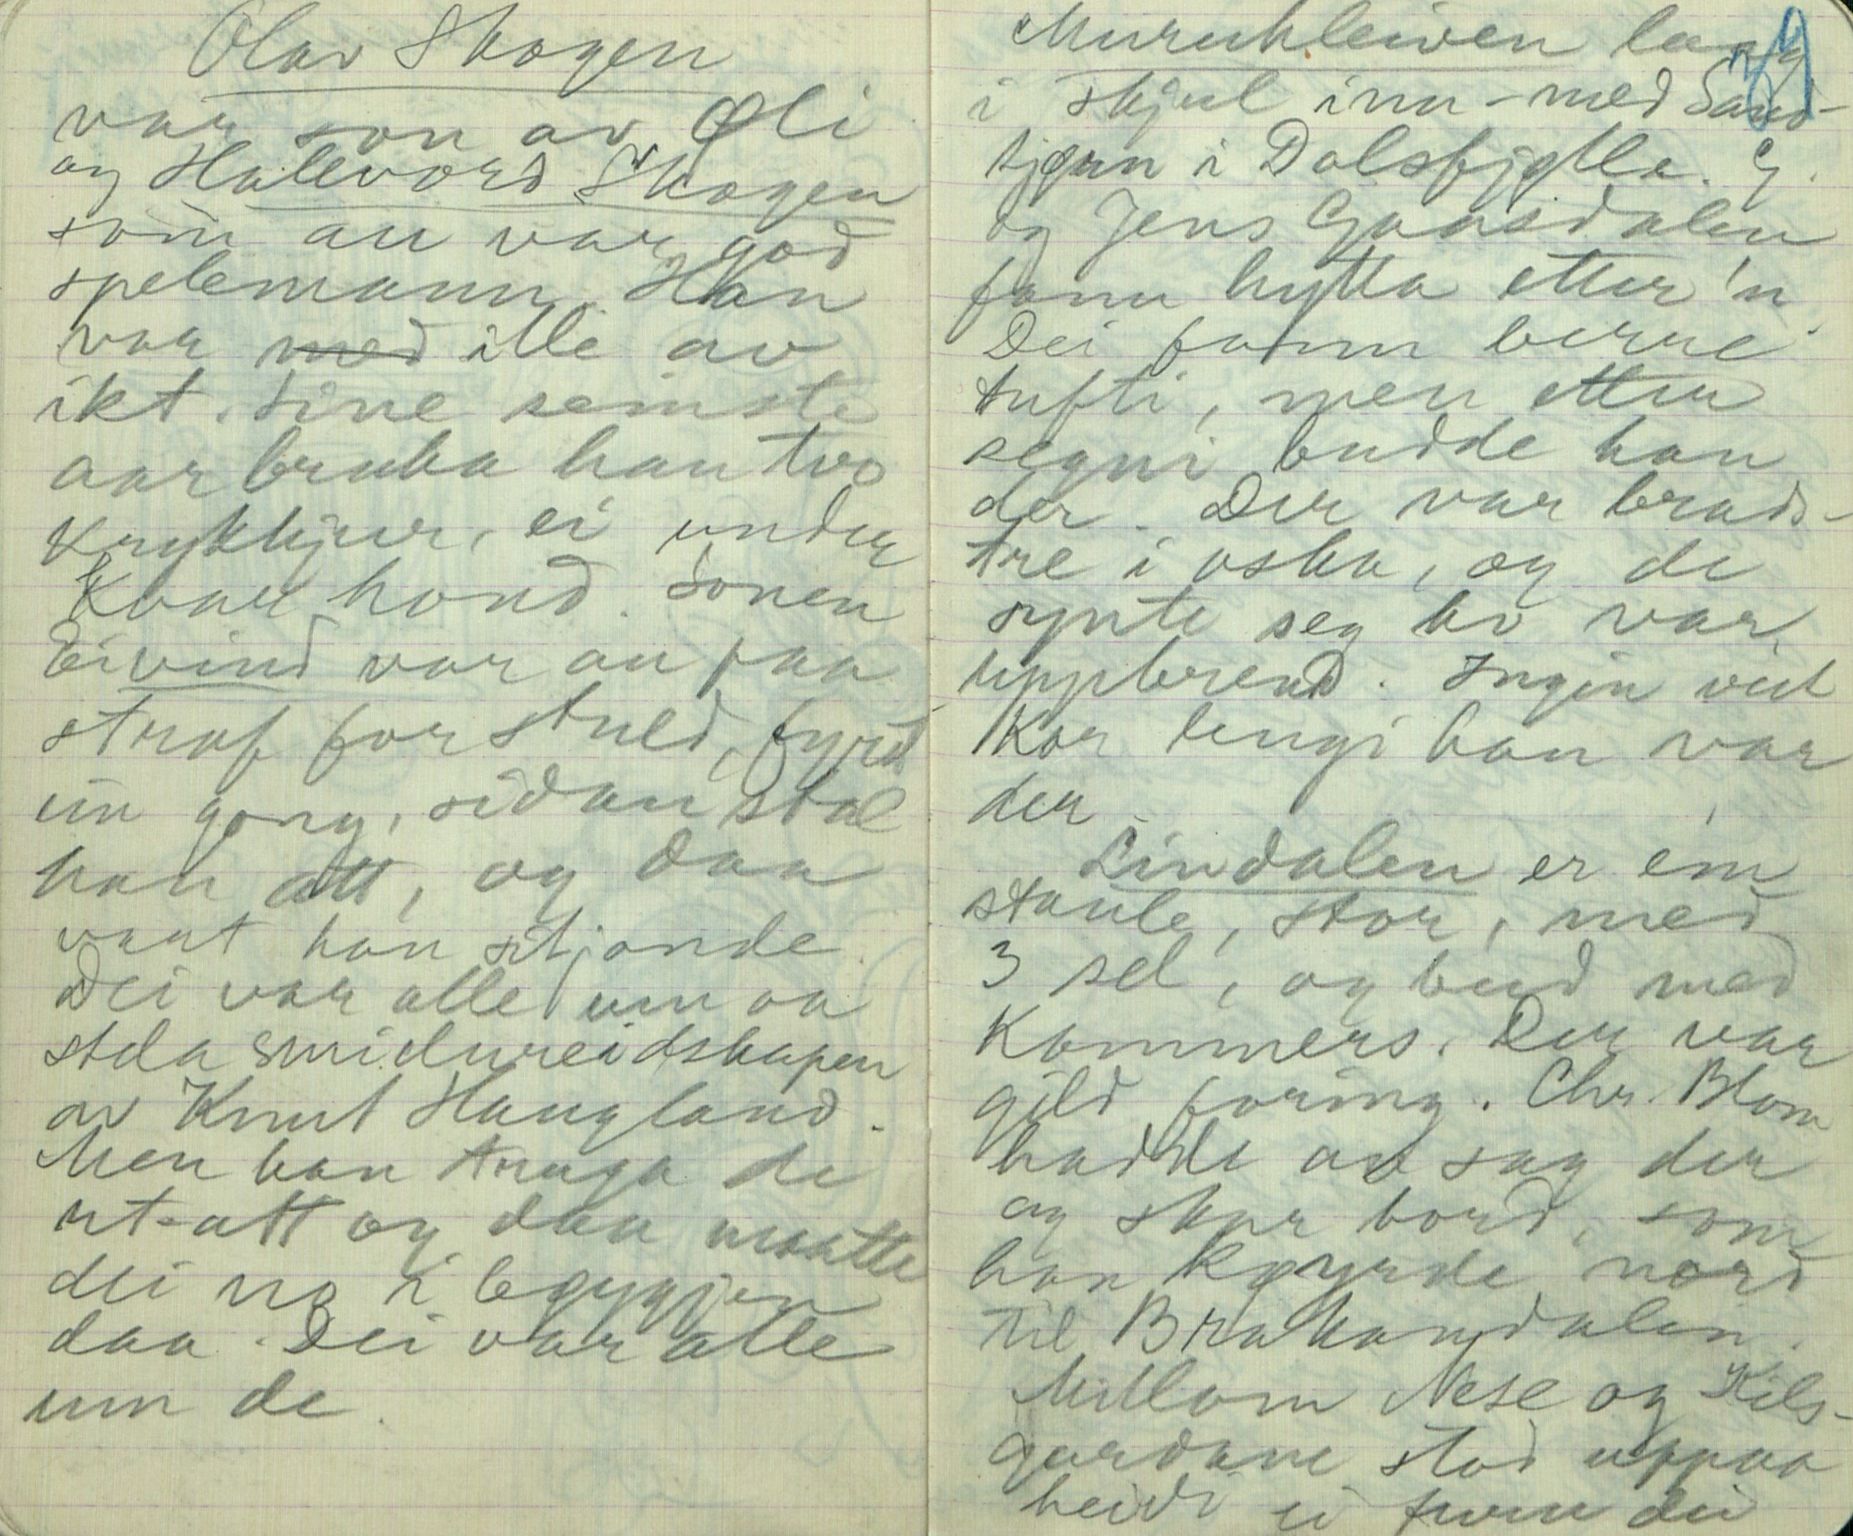 Olav Skogen
var son av Øli
og Halevord Skogen
som au var god
spelemann. Han
var med ille av
ikt. Sine seinste
aar bruka han tvo
Krykkjur, ei under
Kvar hond. Sonen
Eivind var au paa
straf for stuld, fyrst
ein gong, sidan stal
han att, og daa
vart han sitjande.
Dei var alle um aa
stela smidureidskapen
av Knut Haugland.
Men han truga de
ut-att og daa maatte
dei no i
daa. Dei var alle
um de.
Murukleiven laag
i skjul inn-med Sand-
tjønn i Dalsfjølle. G.
og Jens Gaasdalen
fann hytta etter 'n.
Dei fann berre
tufti, men etter
segni budde han
der. Der var brands-
tre i oska, og de
synte seg ho var
uppbrend. Ingin veit
Kor lengi han var
der.
Lindalen er ein
staule, stor, med
3 sel, og bud med
Kammers. Der var
gild foring. Chr. Blom
hadde ao sag der
og skar bord, som
han køyrde nord
til Brakandalen.
Millom Nese og Kils-
gardane stod uppaa
heidi ei furu dei